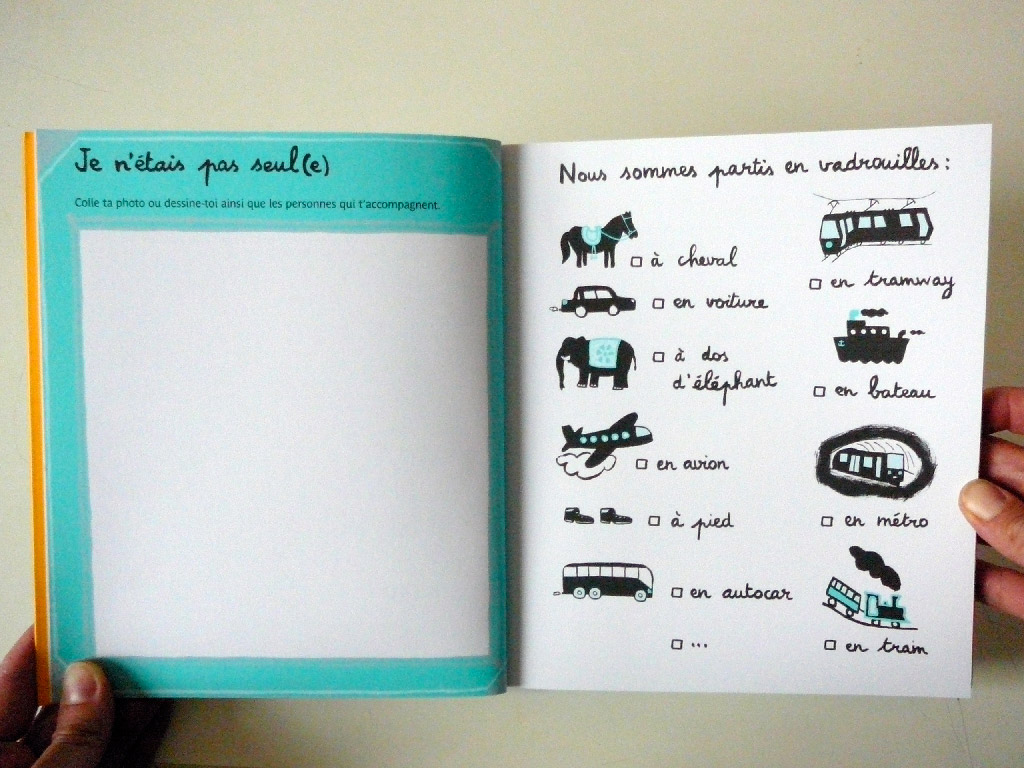 Je n'étais pas seul(e)
Colle ta photo ou dessine-toi ainsi que les personnes qui t'accompagnent.
Nous sommes partis en vadrouilles :
à cheval
en voiture
à dos
d'éléphant
en avion
à pied
en autocar
...
en tramway
en bateau
en métro
en train